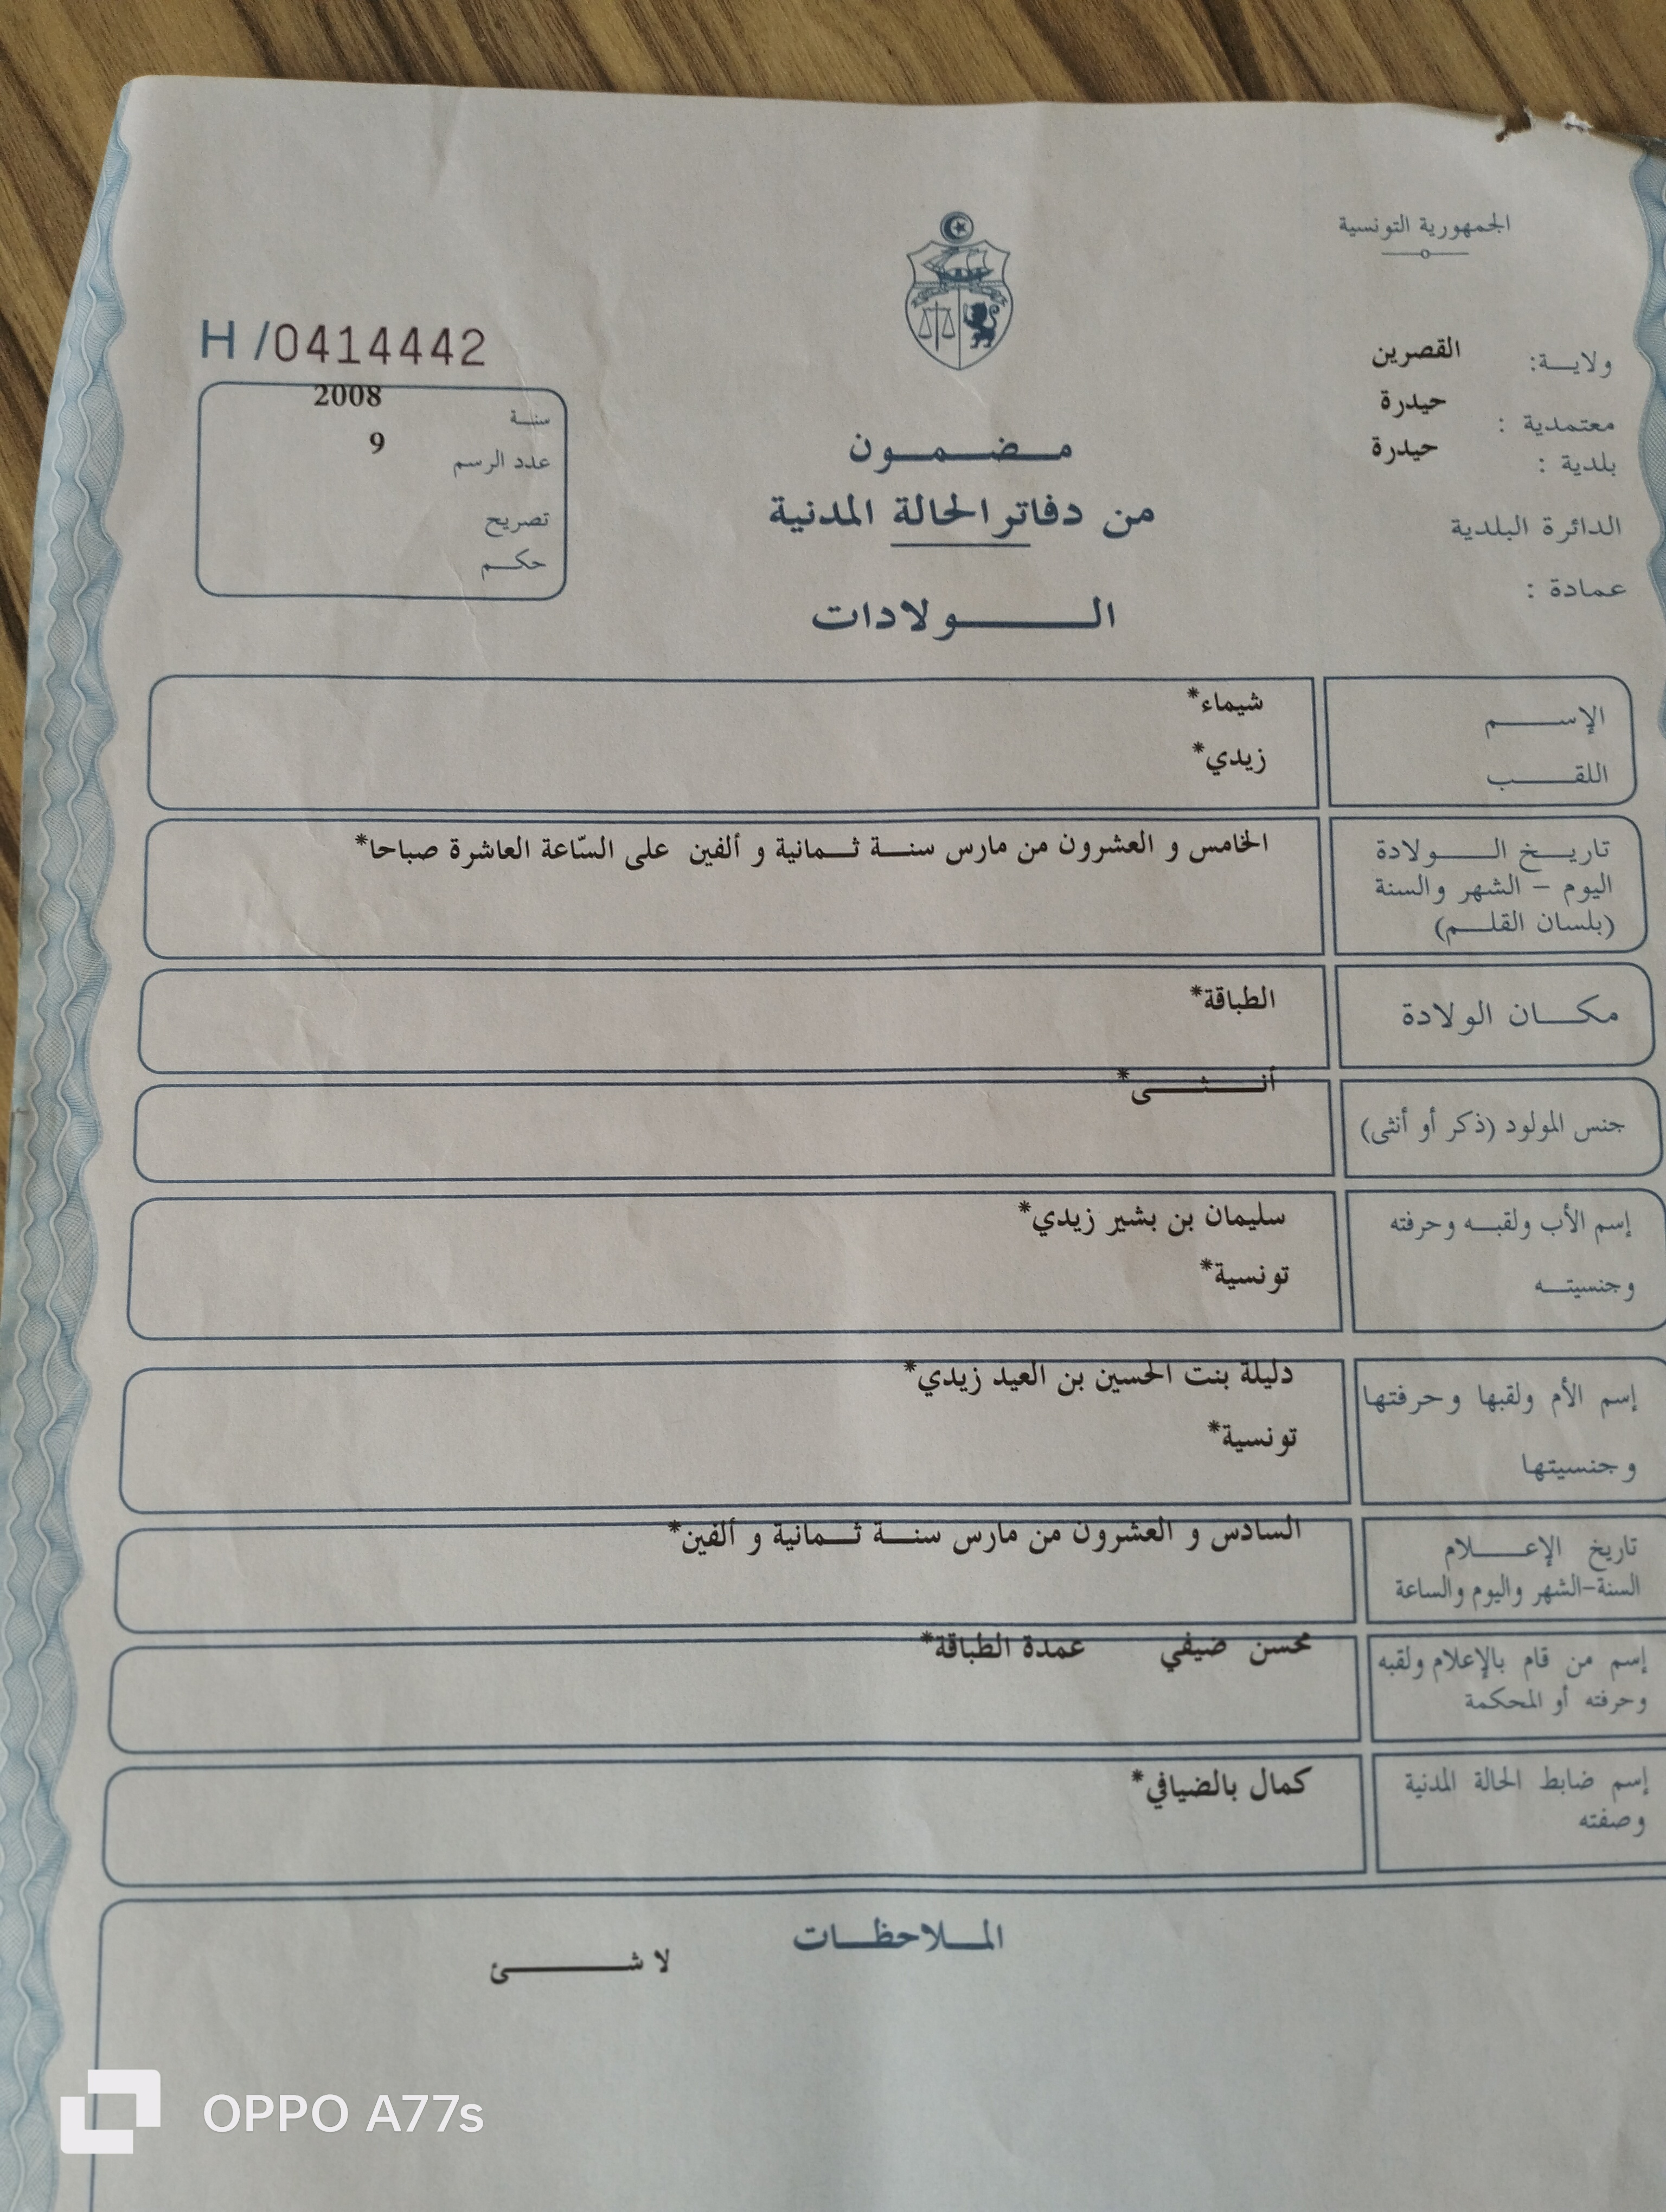 الجمهورية التونسية
ولايـــة: القصرين
معتمدية : حيدرة
بلدية : حيدرة
الدائرة البلدية
عمادة :
H /0414442
سنــة 2008
عدد الرسم 9
تصريح
حكــم
مــضــمــون
من دفاتر الحالة المدنية
الـــــولادات
الإســـــم شيماء*
اللقـــــب زيدي*
تاريــخ الـــــولادة الخامس و العشرون من مارس سنــة ثــمانية و ألفين على السّاعة العاشرة صباحا*
اليوم – الشهر والسنة
(بلسان القلــم)
مكــــان الولادة الطباقة*
جنس المولود (ذكر أو أنثى) أنـــثـــى*
إسم الأب ولقبــه وحرفته سليمان بن بشير زيدي*
وجنسيتــه تونسية*
إسم الأم ولقبها وحرفتها دليلة بنت الحسين بن العيد زيدي*
وجنسيتها تونسية*
تاريخ الإعـــــلام السادس و العشرون من مارس سنــة ثــمانية و ألفين*
السنة-الشهر واليوم والساعة
إسم من قام بالإعلام ولقبه محسن ضيفي عمدة الطباقة*
وحرفته أو المحكمة
إسم ضابط الحالة المدنية كمال بالضيافي*
وصفته
المــلاحظــات
لا شـــــئ
OPPO A77s